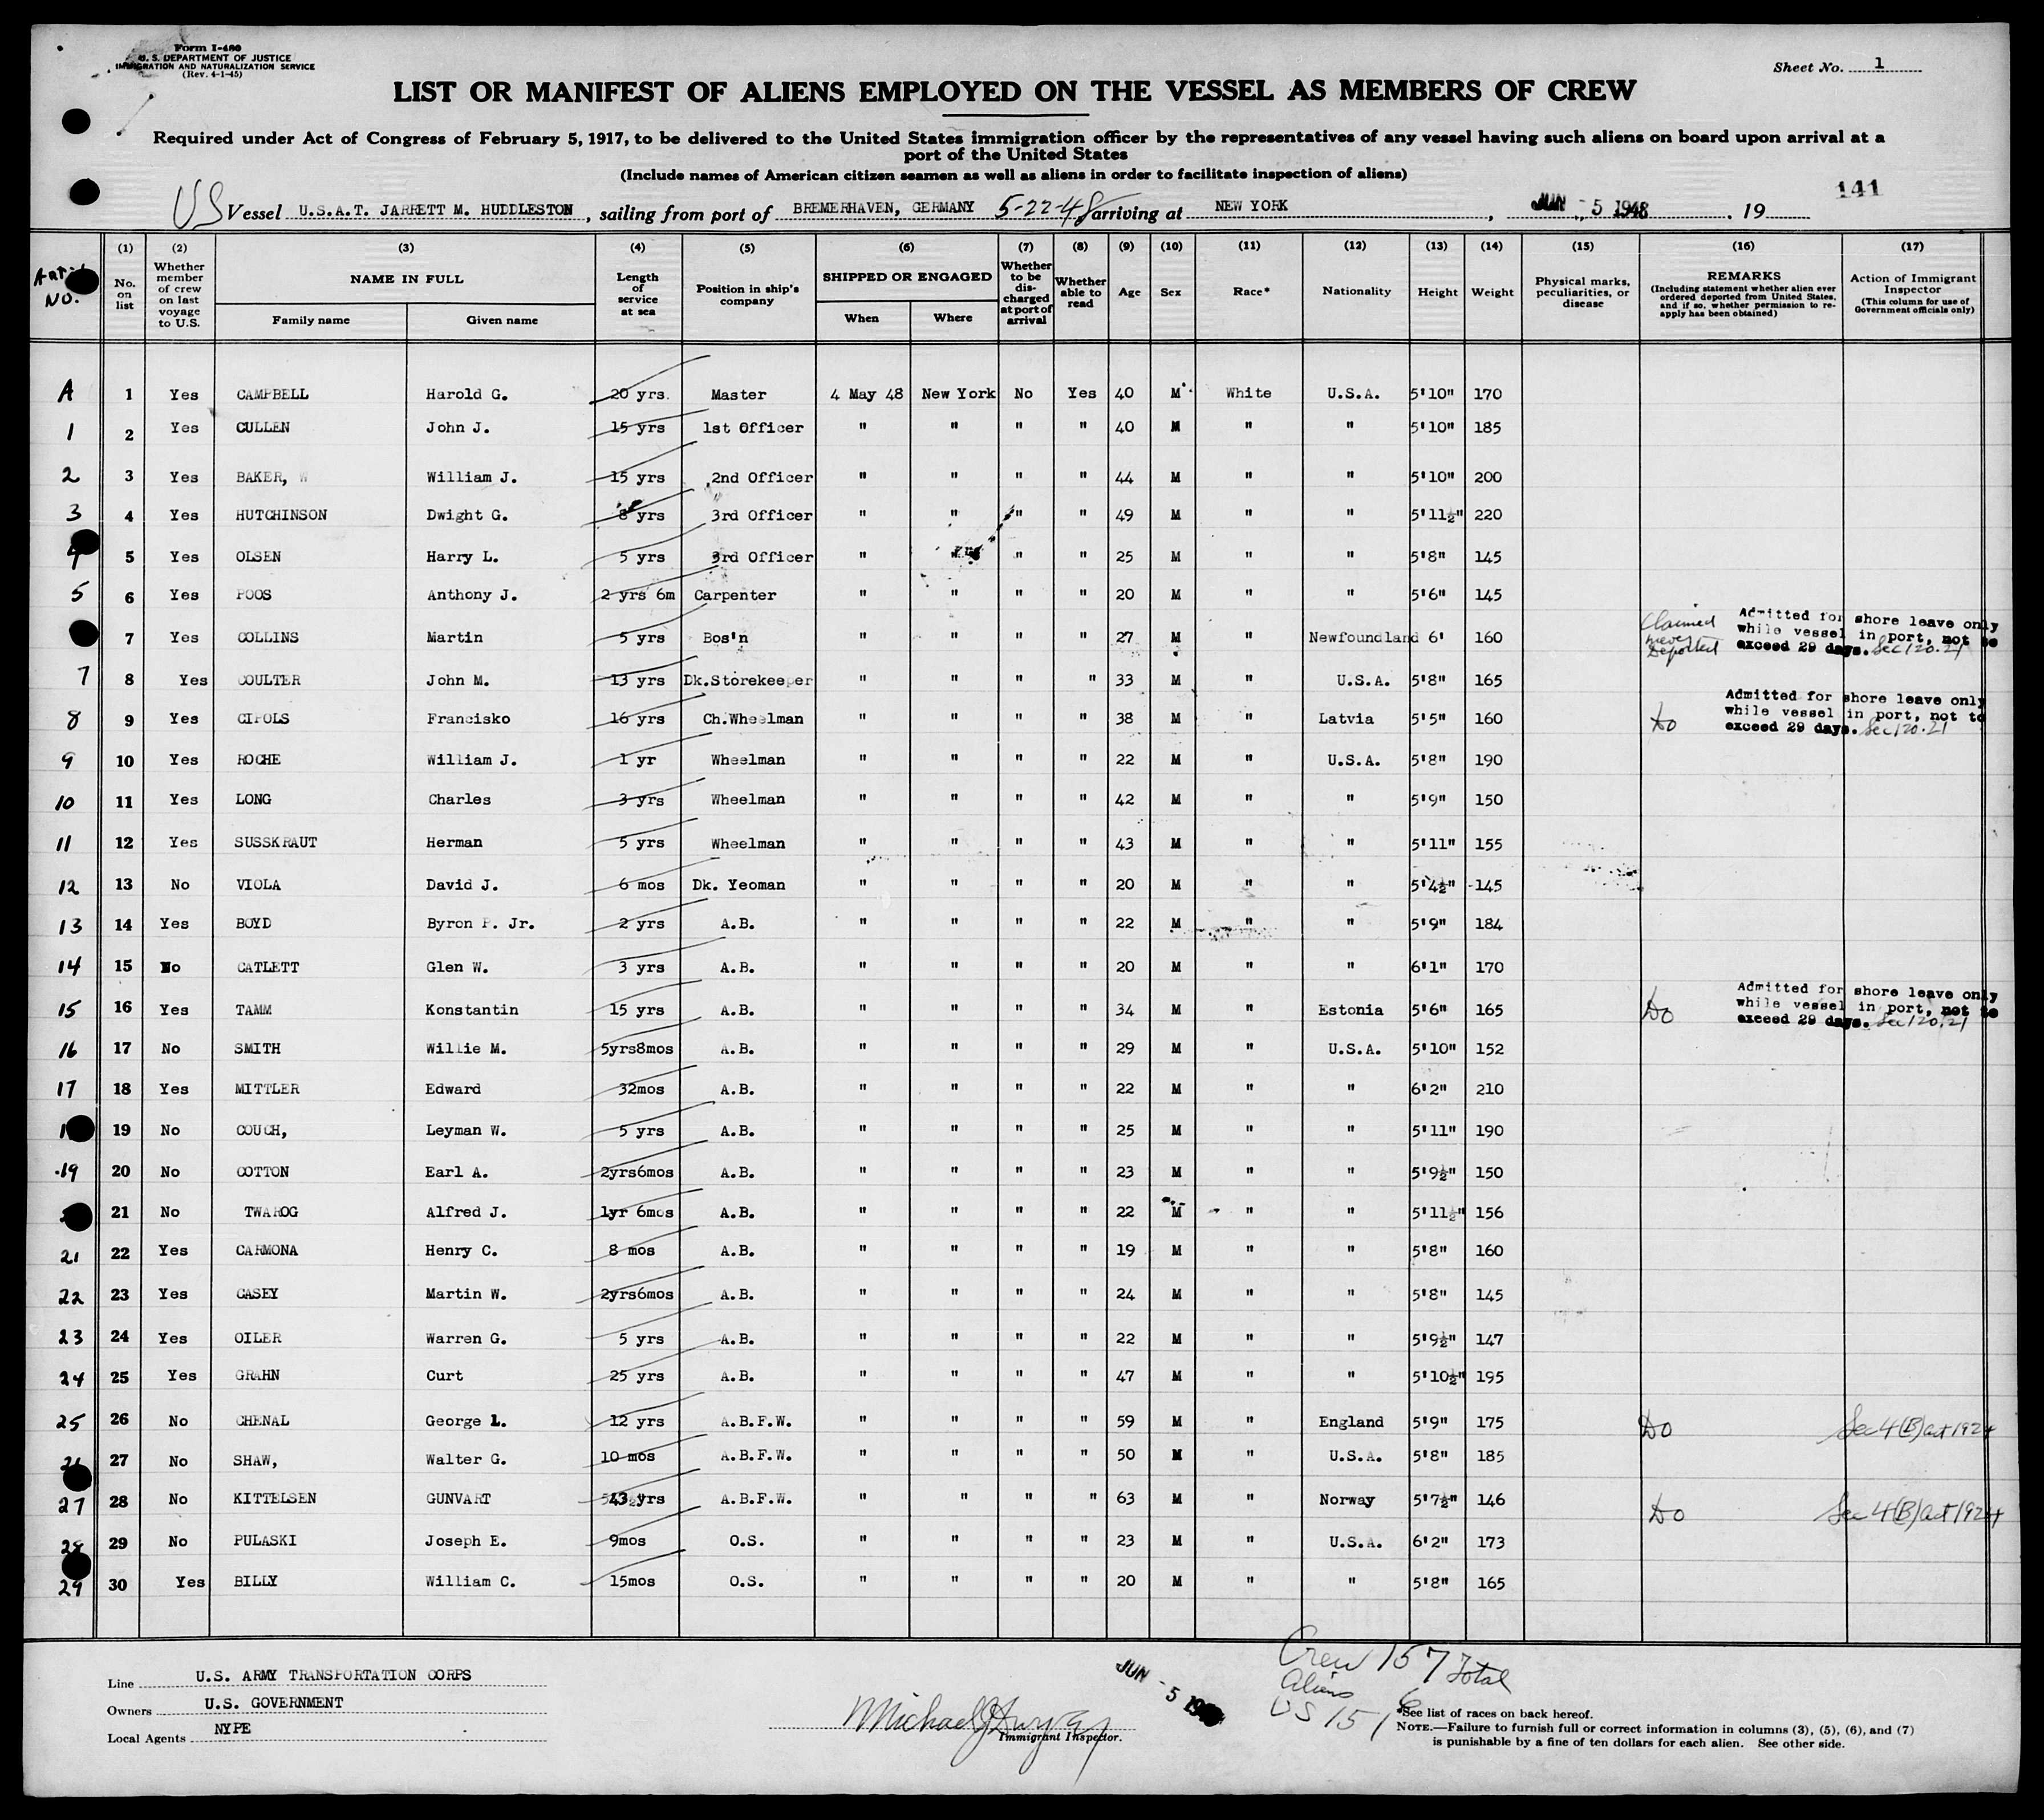 Form I-480
U. S. DEPARTMENT OF JUSTICE
IMMIGRATION AND NATURALIZATION SERVICE
(Rev. 4-1-45)
Sheet No. 1
LIST OR MANIFEST OF ALIENS EMPLOYED ON THE VESSEL AS MEMBERS OF CREW
Required under Act of Congress of February 5, 1917, to be delivered to the United States immigration officer by the representatives of any vessel having such aliens on board upon arrival at a
port of the United States
(Include names of American citizen seamen as well as aliens in order to facilitate inspection of aliens)
141
US Vessel U.S.A.T. JARRETT M. HUDDLESTON, sailing from port of BREMERHAVEN, GERMANY 5-22-48 arriving at NEW YORK, JUN - 5 1948, 19
(1) (2) (3) (4) (5) (6) (7) (8) (9) (10) (11) (12) (13) (14) (15) (16) (17)
NO. No. on list Whether member of crew on last voyage to U.S. NAME IN FULL Family name Given name Length of service at sea Position in ship's company SHIPPED OR ENGAGED When Where Whether to be discharged at port of arrival Whether able to read Age Sex Race* Nationality Height Weight Physical marks, peculiarities, or disease REMARKS (Including statement whether alien ever ordered deported from United States, and if so, whether permission to re-apply has been obtained) Action of Immigrant Inspector (This column for use of Government officials only)
A 1 Yes CAMPBELL Harold G. 20 yrs. Master 4 May 48 New York No Yes 40 M White U.S.A. 5'10" 170
1 2 Yes CULLEN John J. 15 yrs 1st Officer " " " " 40 M " " 5'10" 185
2 3 Yes BAKER, W William J. 15 yrs 2nd Officer " " " " 44 M " " 5'10" 200
3 4 Yes HUTCHINSON Dwight G. 8 yrs 3rd Officer " " " " 49 M " " 5'11½" 220
4 5 Yes OLSEN Harry L. 5 yrs 3rd Officer " " " " 25 M " " 5'8" 145
5 6 Yes POOS Anthony J. 2 yrs 6m Carpenter " " " " 20 M " " 5'6" 145
7 Yes COLLINS Martin 5 yrs Bos'n " " " " 27 M " Newfoundland 6' 160 Claimed never Deported Admitted for shore leave only while vessel in port, not to exceed 29 days. Sec 120.21
7 8 Yes COULTER John M. 13 yrs Dk.Storekeeper " " " " 33 M " U.S.A. 5'8" 165
8 9 Yes CIPOLS Francisko 16 yrs Ch.Wheelman " " " " 38 M " Latvia 5'5" 160 Do Admitted for shore leave only while vessel in port, not to exceed 29 days. Sec 120.21
9 10 Yes ROCHE William J. 1 yr Wheelman " " " " 22 M " U.S.A. 5'8" 190
10 11 Yes LONG Charles 3 yrs Wheelman " " " " 42 M " " 5'9" 150
11 12 Yes SUSSKRAUT Herman 5 yrs Wheelman " " " " 43 M " " 5'11" 155
12 13 No VIOLA David J. 6 mos Dk. Yeoman " " " " 20 M " " 5'4½" 145
13 14 Yes BOYD Byron P. Jr. 2 yrs A.B. " " " " 22 M " " 5'9" 184
14 15 No CATLETT Glen W. 3 yrs A.B. " " " " 20 M " " 6'1" 170
15 16 Yes TAMM Konstantin 15 yrs A.B. " " " " 34 M " Estonia 5'6" 165 Do Admitted for shore leave only while vessel in port, not to exceed 29 days. Sec 120.21
16 17 No SMITH Willie M. 5yrs8mos A.B. " " " " 29 M " U.S.A. 5'10" 152
17 18 Yes MITTLER Edward 32mos A.B. " " " " 22 M " " 6'2" 210
19 No COUCH, Leyman W. 5 yrs A.B. " " " " 25 M " " 5'11" 190
19 20 No COTTON Earl A. 2yrs6mos A.B. " " " " 23 M " " 5'9½" 150
21 No TWAROG Alfred J. 1yr 6mos A.B. " " " " 22 M " " 5'11½" 156
21 22 Yes CARMONA Henry C. 8 mos A.B. " " " " 19 M " " 5'8" 160
22 23 Yes CASEY Martin W. 2yrs6mos A.B. " " " " 24 M " " 5'8" 145
23 24 Yes OILER Warren G. 5 yrs A.B. " " " " 22 M " " 5'9½" 147
24 25 Yes GRAHN Curt 25 yrs A.B. " " " " 47 M " " 5'10½" 195
25 26 No CHENAL George L. 12 yrs A.B.F.W. " " " " 59 M " England 5'9" 175 Do Sec 4(B) act 1924
27 No SHAW, Walter G. 10 mos A.B.F.W. " " " " 50 M " U.S.A. 5'8" 185
27 28 No KITTELSEN GUNVART 43 yrs A.B.F.W. " " " " 63 M " Norway 5'7½" 146 Do Sec 4(B) act 1924
28 29 No PULASKI Joseph E. 9mos O.S. " " " " 23 M " U.S.A. 6'2" 173
29 30 Yes BILLY William C. 15mos O.S. " " " " 20 M " " 5'8" 165
Line U.S. ARMY TRANSPORTATION CORPS
Owners U.S. GOVERNMENT
Local Agents NYPE
JUN - 5
Michael J Dwyer
Immigrant Inspector.
Crew 157 Total
Aliens 6
US 151
*See list of races on back hereof.
NOTE.—Failure to furnish full or correct information in columns (3), (5), (6), and (7)
is punishable by a fine of ten dollars for each alien. See other side.